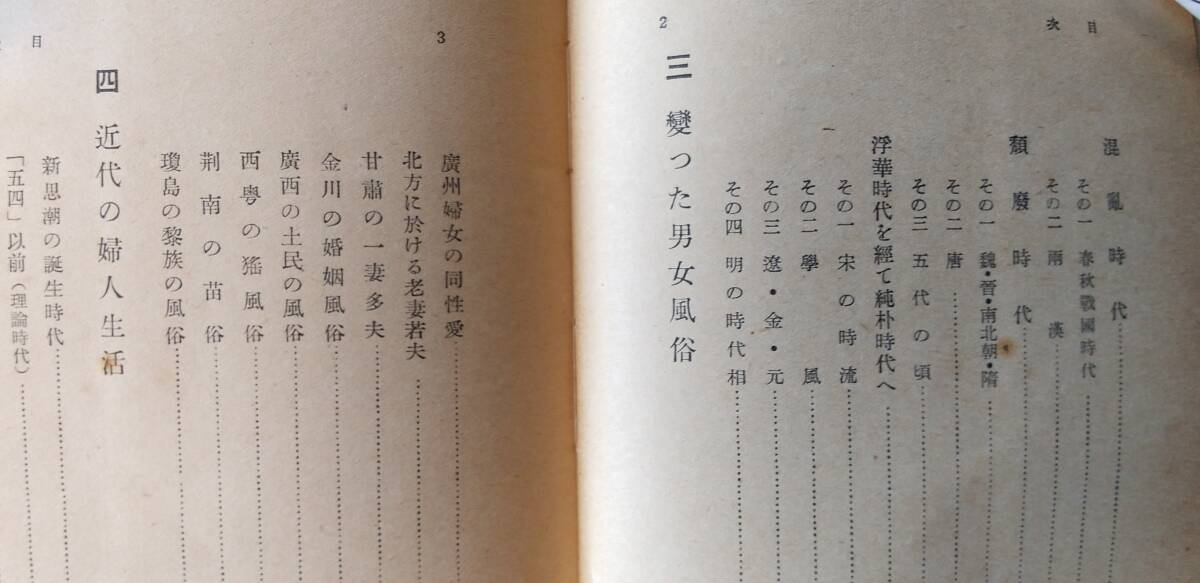 次目
2
混亂時代
その一 春秋戰國時代
その二 兩漢
頽廢時代
その一 魏・晉・南北朝・隋
その二 唐
その三 五代の頃
浮華時代を經て純朴時代へ
その一 宋の時流
その二 學風
その三 遼・金・元
その四 明の時代相
三 變つた男女風俗
3
廣州婦女の同性愛
北方に於ける老妻若夫
甘肅の一妻多夫
金川の婚姻風俗
廣西の土民の風俗
西粤の猺風俗
荆南の苗俗
瓊島の黎族の風俗
四 近代の婦人生活
新思潮の誕生時代
「五四」以前（理論時代）
目